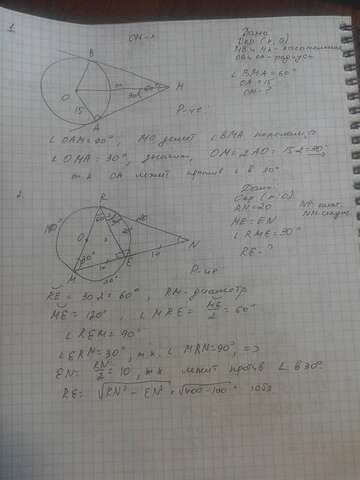 1
Дано
Окр (r, O)
MB и MA - касательные
OB и OA - радиусы
∠BMA = 60°
OA = 15
OM - ?
B
O
M
15
30°
60°
A
Р-ие
∠OAM = 90°, MO делит ∠BMA пополам,
∠OMA = 30°, значит, OM = 2AO = 15·2 = 30,
т.к. OA лежит против ∠ в 30°
2.
Дано:
Окр (r, O)
RM = 20
ME = EN
∠RME = 30°
RE - ?
R
O
N
M
E
30°
Р-ие
RE = 30·2 = 60°, RM - диаметр
ME = 120°, ∠MRE = ME/2 = 60°
∠REM = 90°
∠ERN = 30°, т.к. ∠MRN = 90°, =>
EN = RN/2 = 10, т.к. лежит против ∠ в 30°
RE = √RN² - EN² = √400-100 = 10√3